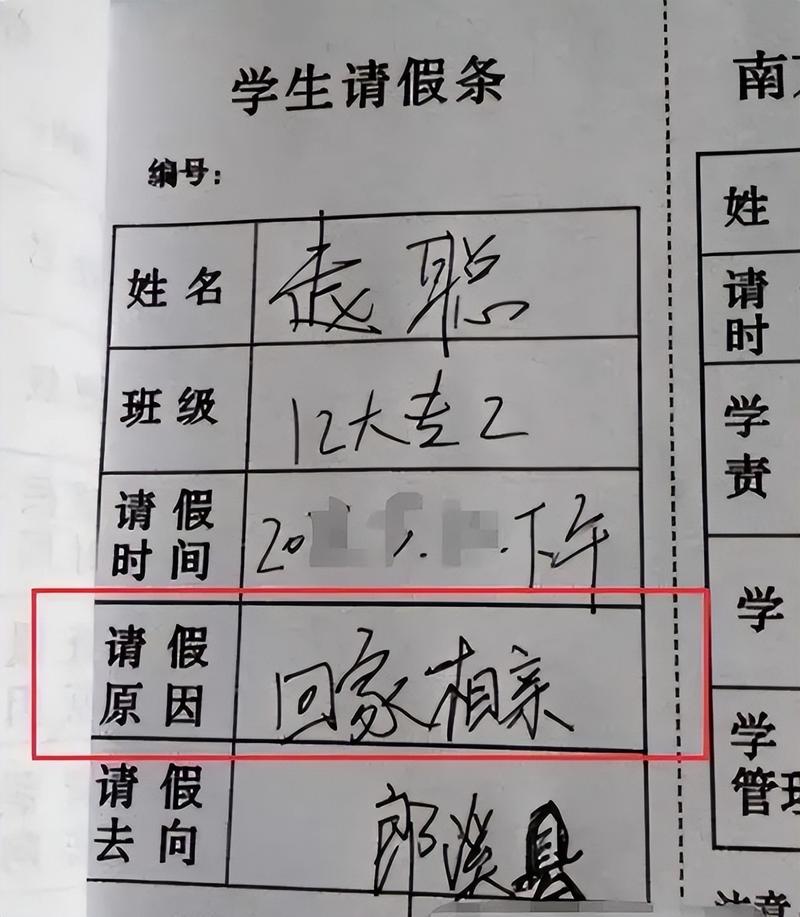 学生请假条
编号：
姓名 聪
班级 12大专2
请假
时间 20 下午
请假
原因 回家相亲
请假
去向 郎溪县
南
姓
请
时
学
责
学
学
管理
注意